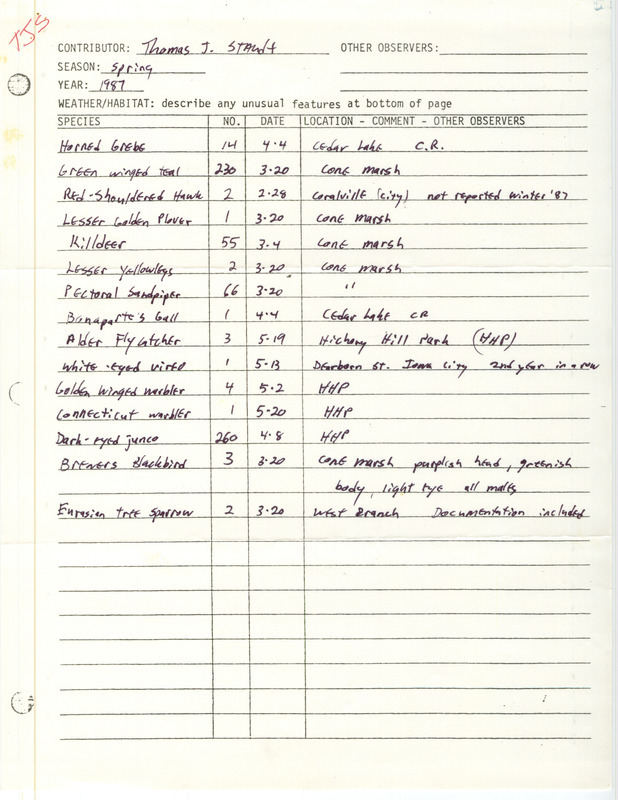 TJS
CONTRIBUTOR: Thomas J. Staudt OTHER OBSERVERS:
SEASON: Spring
YEAR: 1987
WEATHER/HABITAT: describe any unusual features at bottom of page
SPECIES NO. DATE LOCATION - COMMENT - OTHER OBSERVERS
Horned Grebe 14 4-4 Cedar Lake C.R.
Green winged teal 230 3-20 Cone marsh
Red-Shouldered Hawk 2 2-28 Coralville (city) not reported winter '87
Lesser Golden Plover 1 3-20 Cone marsh
Killdeer 55 3-4 Cone marsh
Lesser yellowlegs 2 3-20 Cone marsh
Pectoral Sandpiper 66 3-20 "
Bonaparte's Gull 1 4-4 Cedar Lake CR
Alder Flycatcher 3 5-19 Hickory Hill Park (HHP)
White-eyed vireo 1 5-13 Dearborn St. Iowa City 2nd year in a row
Golden winged warbler 4 5-2 HHP
Connecticut warbler 1 5-20 HHP
Dark-eyed junco 260 4-8 HHP
Brewers Blackbird 3 3-20 Cone marsh purplish head, greenish
body, light eye all males
Eurasian tree sparrow 2 3-20 West Branch Documentation included